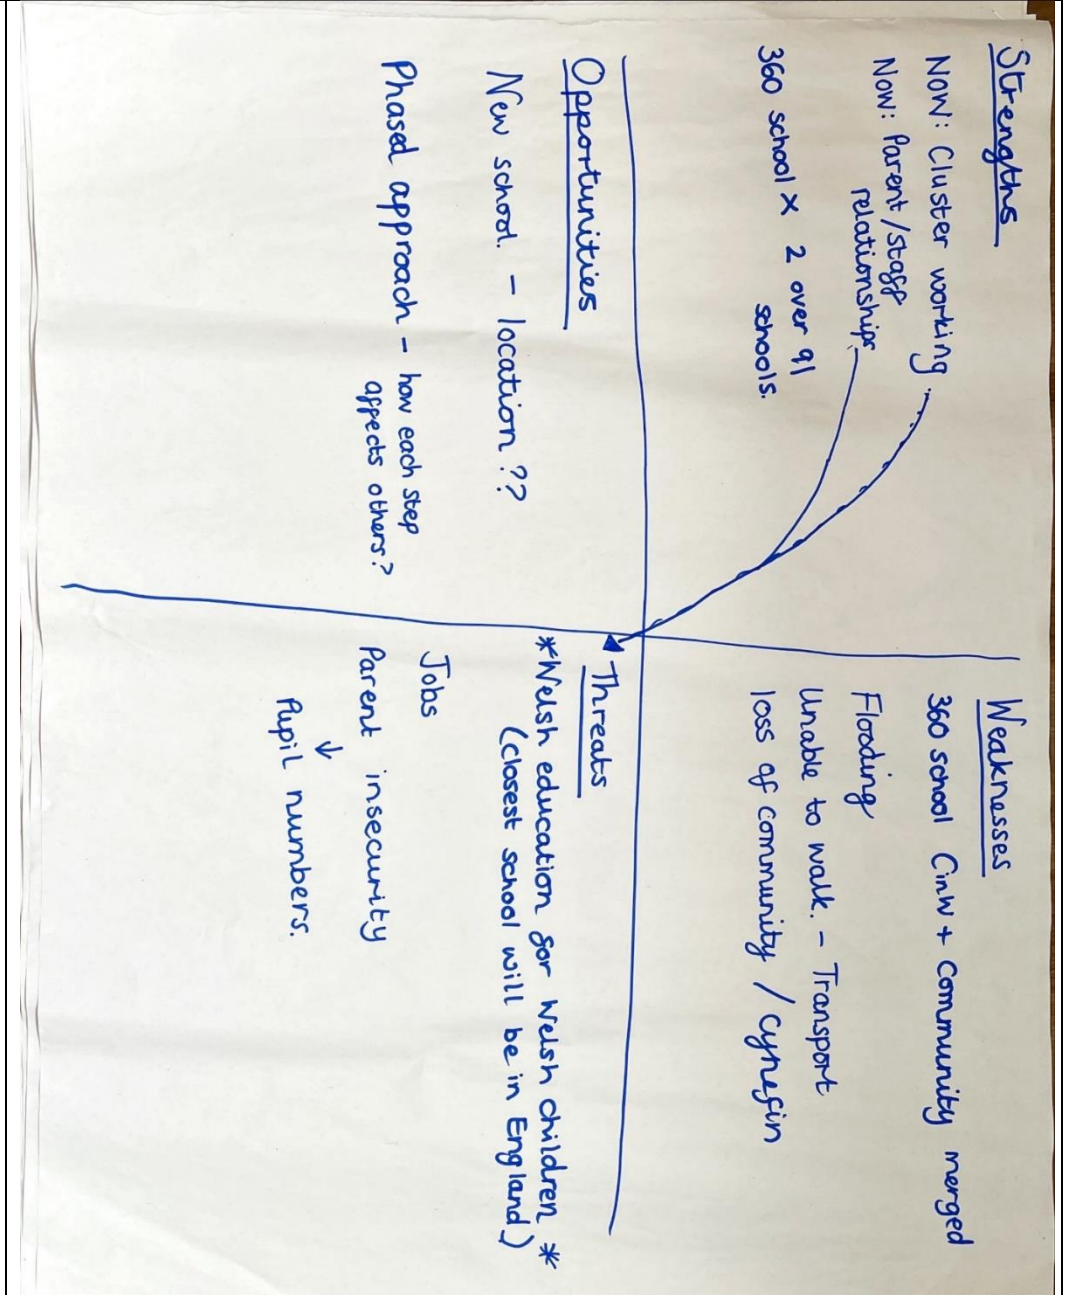 Strengths
Now: Cluster working
Now: Parent/staff
relationships
360 school x 2 over 91
schools.
Weaknesses
360 school CinW + Community merged
Flooding
Unable to walk. - Transport
loss of community / cynefin
Opportunities
New school. - location ??
Phased approach - how each step
affects others?
Threats
*Welsh education for Welsh children *
(closest school will be in England)
Jobs
Parent insecurity
↓
Pupil numbers.